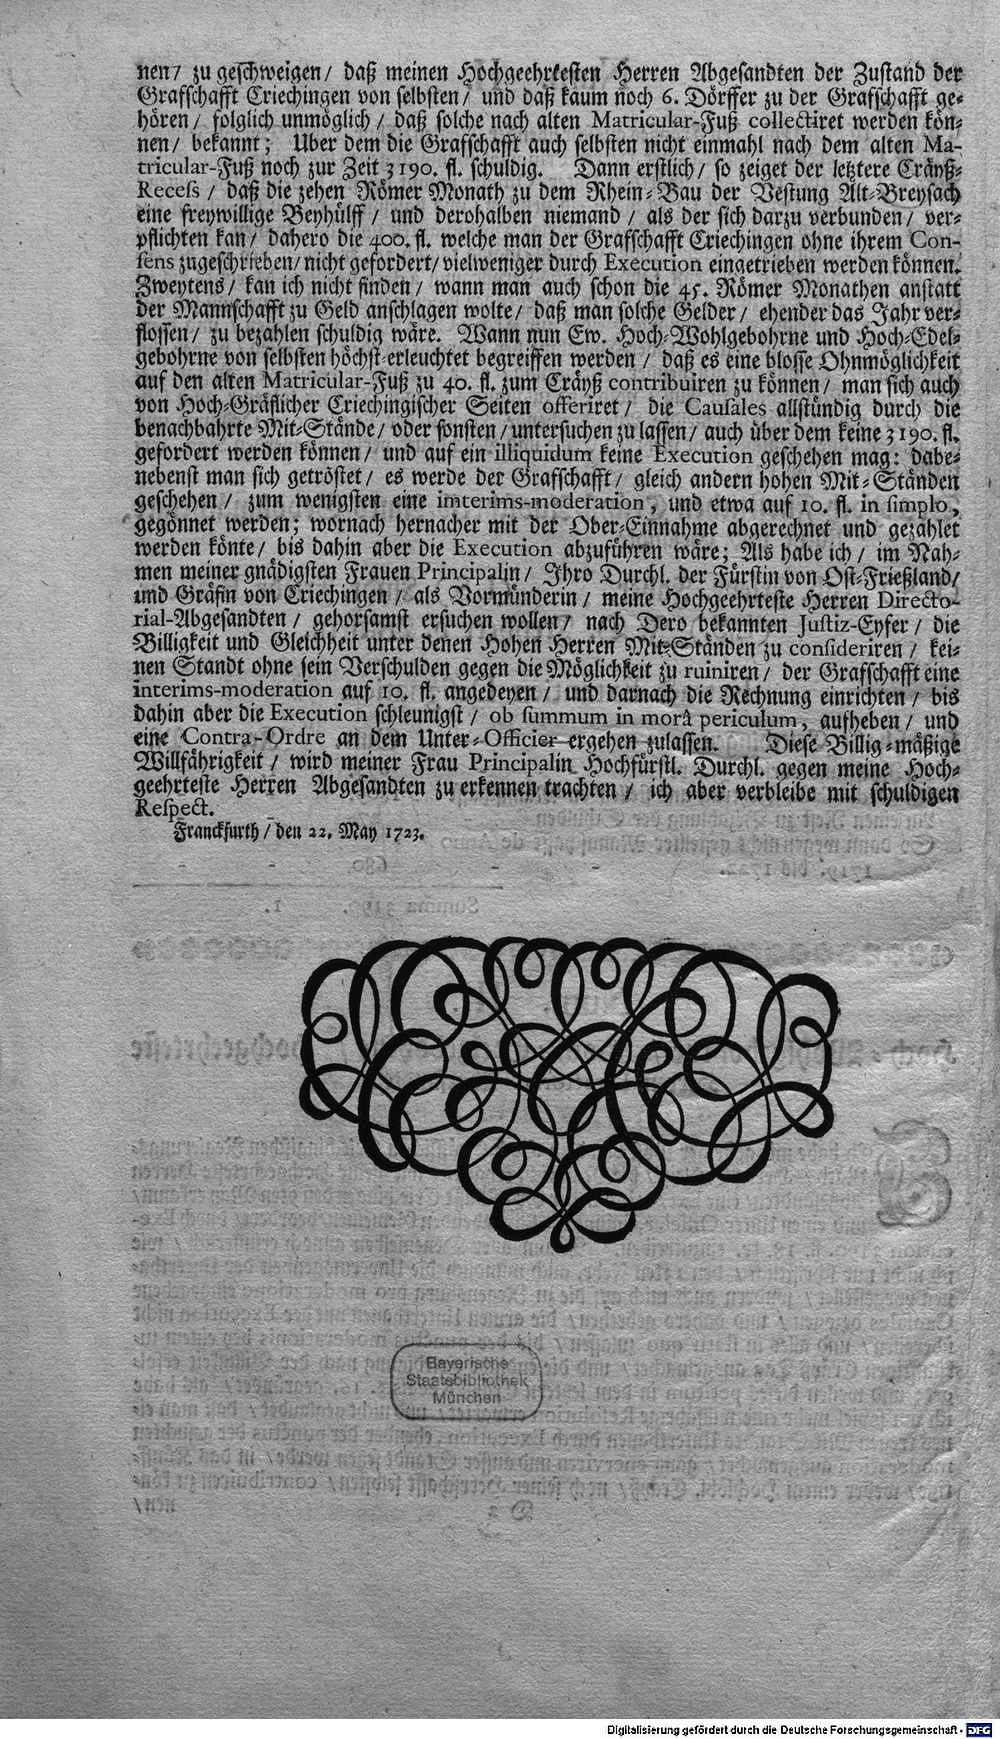 nen/ zu geschweigen/ daß meinen Hochgeehrtesten Herren Abgesandten der Zustand der
Grafschafft Criechingen von selbsten/ und daß kaum noch 6. Dörffer zu der Grafschafft ge-
hören/ folglich unmöglich/ daß solche nach alten Matricular-Fuß collectiret werden kön-
nen/ bekannt; Uber dem die Grafschafft auch selbsten nicht einmahl nach dem alten Ma-
tricular-Fuß noch zur Zeit 3190. fl. schuldig. Dann erstlich/ so zeiget der letztere Cräyß-
Recess/ daß die zehen Römer Monath zu dem Rhein-Bau der Vestung Alt-Breysach
eine freywillige Beyhülff/ und derohalben niemand/ als der sich darzu verbunden/ ver-
pflichten kan/ dahero die 400. fl. welche man der Grafschafft Criechingen ohne ihrem Con-
sens zugeschrieben/ nicht gefordert/ vielweniger durch Execution eingetrieben werden können.
Zweytens/ kan ich nicht finden/ wann man auch schon die 45. Römer Monathen anstatt
der Mannschafft zu Geld anschlagen wolte/ daß man solche Gelder/ ehender das Jahr ver-
flossen/ zu bezahlen schuldig wäre. Wann nun Ew. Hoch-Wohlgebohrne und Hoch-Edel-
gebohrne von selbsten höchst-erleuchtet begreiffen werden/ daß es eine blosse Ohnmöglichkeit
auf den alten Matricular-Fuß zu 40. fl. zum Cräyß contribuiren zu können/ man sich auch
von Hoch-Gräflicher Criechingischer Seiten offeriret/ die Causales allstündig durch die
benachbahrte Mit-Stände/ oder sonsten/ untersuchen zu lassen/ auch über dem keine 3190. fl.
gefordert werden können/ und auf ein illiquidum keine Execution geschehen mag: dabe-
nebenst man sich getröstet/ es werde der Grafschafft/ gleich andern hohen Mit-Ständen
geschehen/ zum wenigsten eine imterims-moderation, und etwa auf 10. fl. in simplo,
gegönnet werden; wornach hernacher mit der Ober-Einnahme abgerechnet und gezahlet
werden könte/ bis dahin aber die Execution abzuführen wäre; Als habe ich/ im Nah-
men meiner gnädigsten Frauen Principalin/ Ihro Durchl. der Fürstin von Ost-Frießland/
und Gräfin von Criechingen/ als Vormünderin/ meine Hochgeehrteste Herren Directo-
rial-Abgesandten/ gehorsamst ersuchen wollen/ nach Dero bekannten Justiz-Eyfer/ die
Billigkeit und Gleichheit unter denen Hohen Herren Mit-Ständen zu consideriren/ kei-
nen Standt ohne sein Verschulden gegen die Möglichkeit zu ruiniren/ der Grafschafft eine
interims-moderation auf 10. fl. angedeyen/ und darnach die Rechnung einrichten/ bis
dahin aber die Execution schleunigst/ ob summum in morâ periculum, aufheben/ und
eine Contra-Ordre an dem Unter-Officier ergehen zulassen. Diese Billig-mäßige
Willfährigkeit/ wird meiner Frau Principalin Hochfürstl. Durchl. gegen meine Hoch-
geehrteste Herren Abgesandten zu erkennen trachten/ ich aber verbleibe mit schuldigen
Respect.
Franckfurth/ den 22. May 1723.
Bayerische
Staatsbibliothek
München
Digitalisierung gefördert durch die Deutsche Forschungsgemeinschaft - DFG